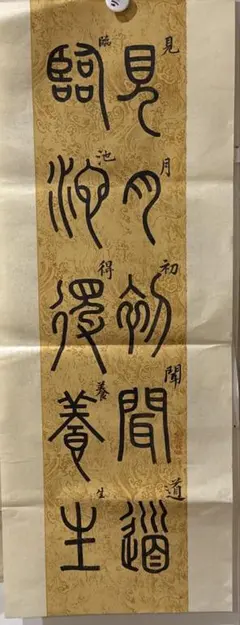 見月初聞道
臨池得養生